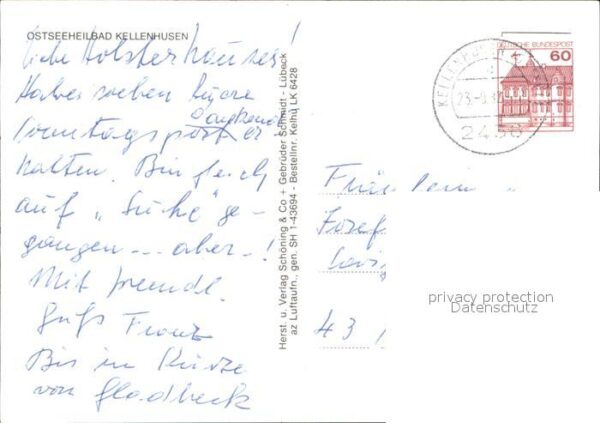 OSTSEEHEILBAD KELLENHUSEN
Liebe Holsterhauser!
Habe soeben Eure
Sonntagspost er
halten. Bin gleich
auf "Suche" ge-
gangen --- aber-!
Mit freundl.
Gruß Franz
Bis in Kürze
von Gladbeck
Herst. u. Verlag Schöning & Co + Gebrüder Schmidt - Lübeck
az Luftaufn., gen. SH 1-43694 - Bestellnr. Kelhu LK 6428
DEUTSCHE BUNDESPOST
60
23.-9.
Fräulein
Josef
43
privacy protection
Datenschutz